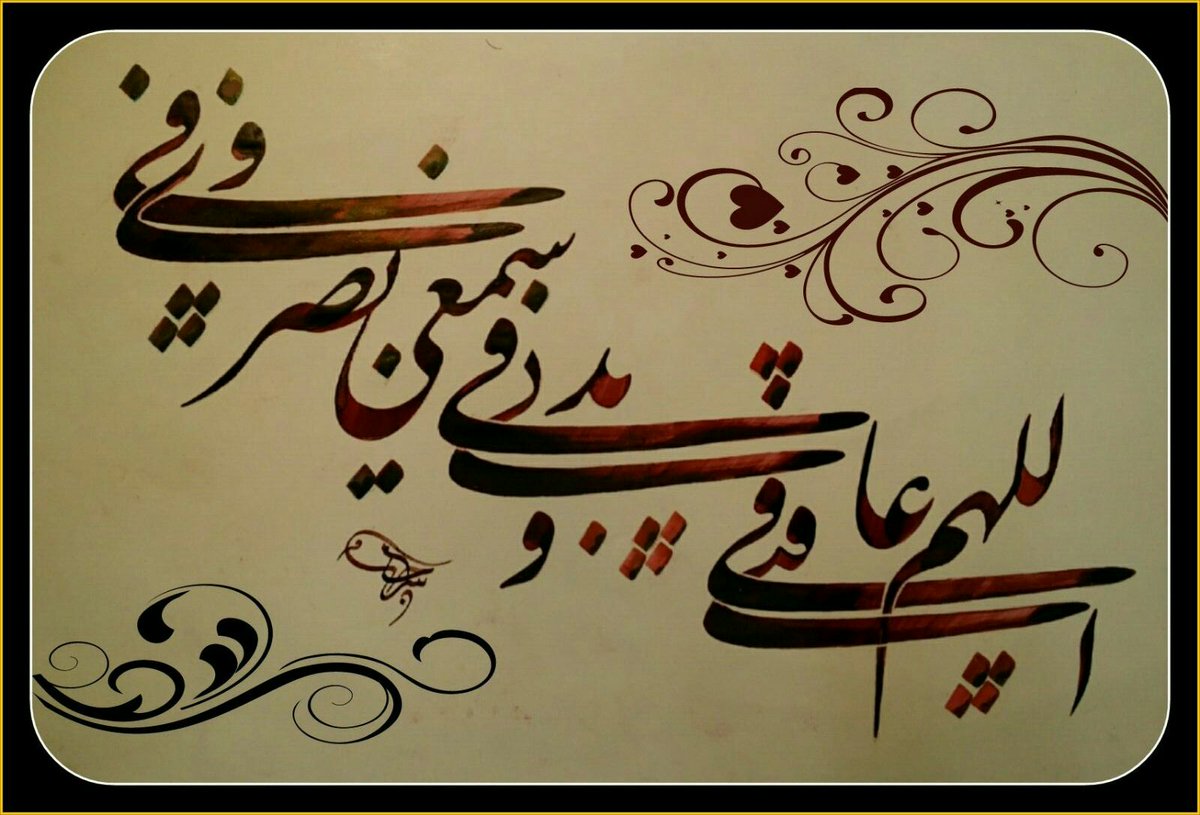 اللهم عافنی فی
بدنی و فی سمعی
و فی بصری